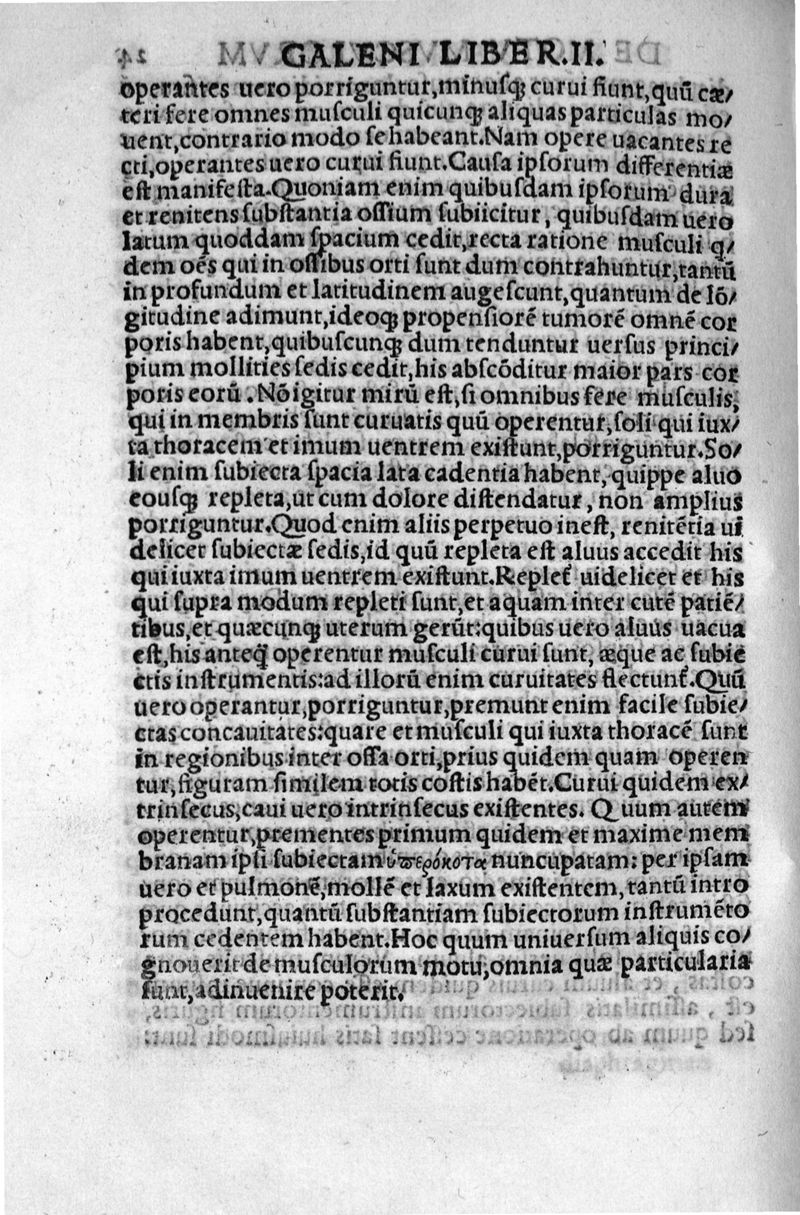 GALENI LIBER.II.
operantes uero porriguntur,minusqꝫ curui fiunt,quū cæ/
teri fere omnes musculi quicunqꝫ aliquas particulas mo/
uent,contrario modo se habeant.Nam opere uacantes re
cti,operantes uero curui fiunt.Causa ipsorum differentiæ
est manifesta.Quoniam enim quibusdam ipsorum dura
et renitens substantia ossium subiicitur, quibusdam uero
latum quoddam spacium cedit,recta ratione musculi q/
dem oēs qui in ossibus orti sunt dum contrahuntur,tantū
in profundum et latitudinem augescunt,quantum de lō/
gitudine adimunt,ideoqꝫ propensiorē tumorē omnē cor
poris habent,quibuscunqꝫ dum tenduntur uersus princi/
pium mollities sedis cedit,his abscōditur maior pars cor
poris eorū. Nō igitur mirū est,si omnibus fere musculis,
qui in membris sunt curuatis quū operentur,soli qui iux/
ta thoracem et imum uentrem existunt,porriguntur.So/
li enim subiecta spacia lata cadentia habent, quippe aluo
eousqꝫ repleta,ut cum dolore distendatur, non amplius
porriguntur.Quod enim aliis perpetuo inest, renitētia ui
delicet subiectæ sedis,id quū repleta est aluus accedit his
qui iuxta imum uentrem existunt.Replet᷑ uidelicet et his
qui supra modum repleti sunt,et aquam inter cutē patiē/
tibus,et quæcunqꝫ uterum gerūt:quibus uero aluus uacua
est,his anteq̄ operentur musculi curui sunt, æque ac subie
ctis instrumentis:ad illorū enim curuitates flectunt᷑.Quū
uero operantur,porriguntur,premunt enim facile subie/
ctas concauitates:quare et musculi qui iuxta thoracē sunt
in regionibus inter ossa orti,prius quidem quam operen
tur,figuram similem totis costis habēt.Curui quidem ex/
trinsecus,caui uero intrinsecus existentes. Quum autem
operentur,prementes primum quidem et maxime mem
branam ipsi subiectam ὑπεζόκοτα nuncupatam: per ipsam
uero et pulmonē,mollē et laxum existentem,tantū intro
procedunt,quantū substantiam subiectorum instrumēto
rum cedentem habent.Hoc quum uniuersum aliquis co/
gnouerit de musculorum motu,omnia quæ particularia
sunt,adinuenire poterit.